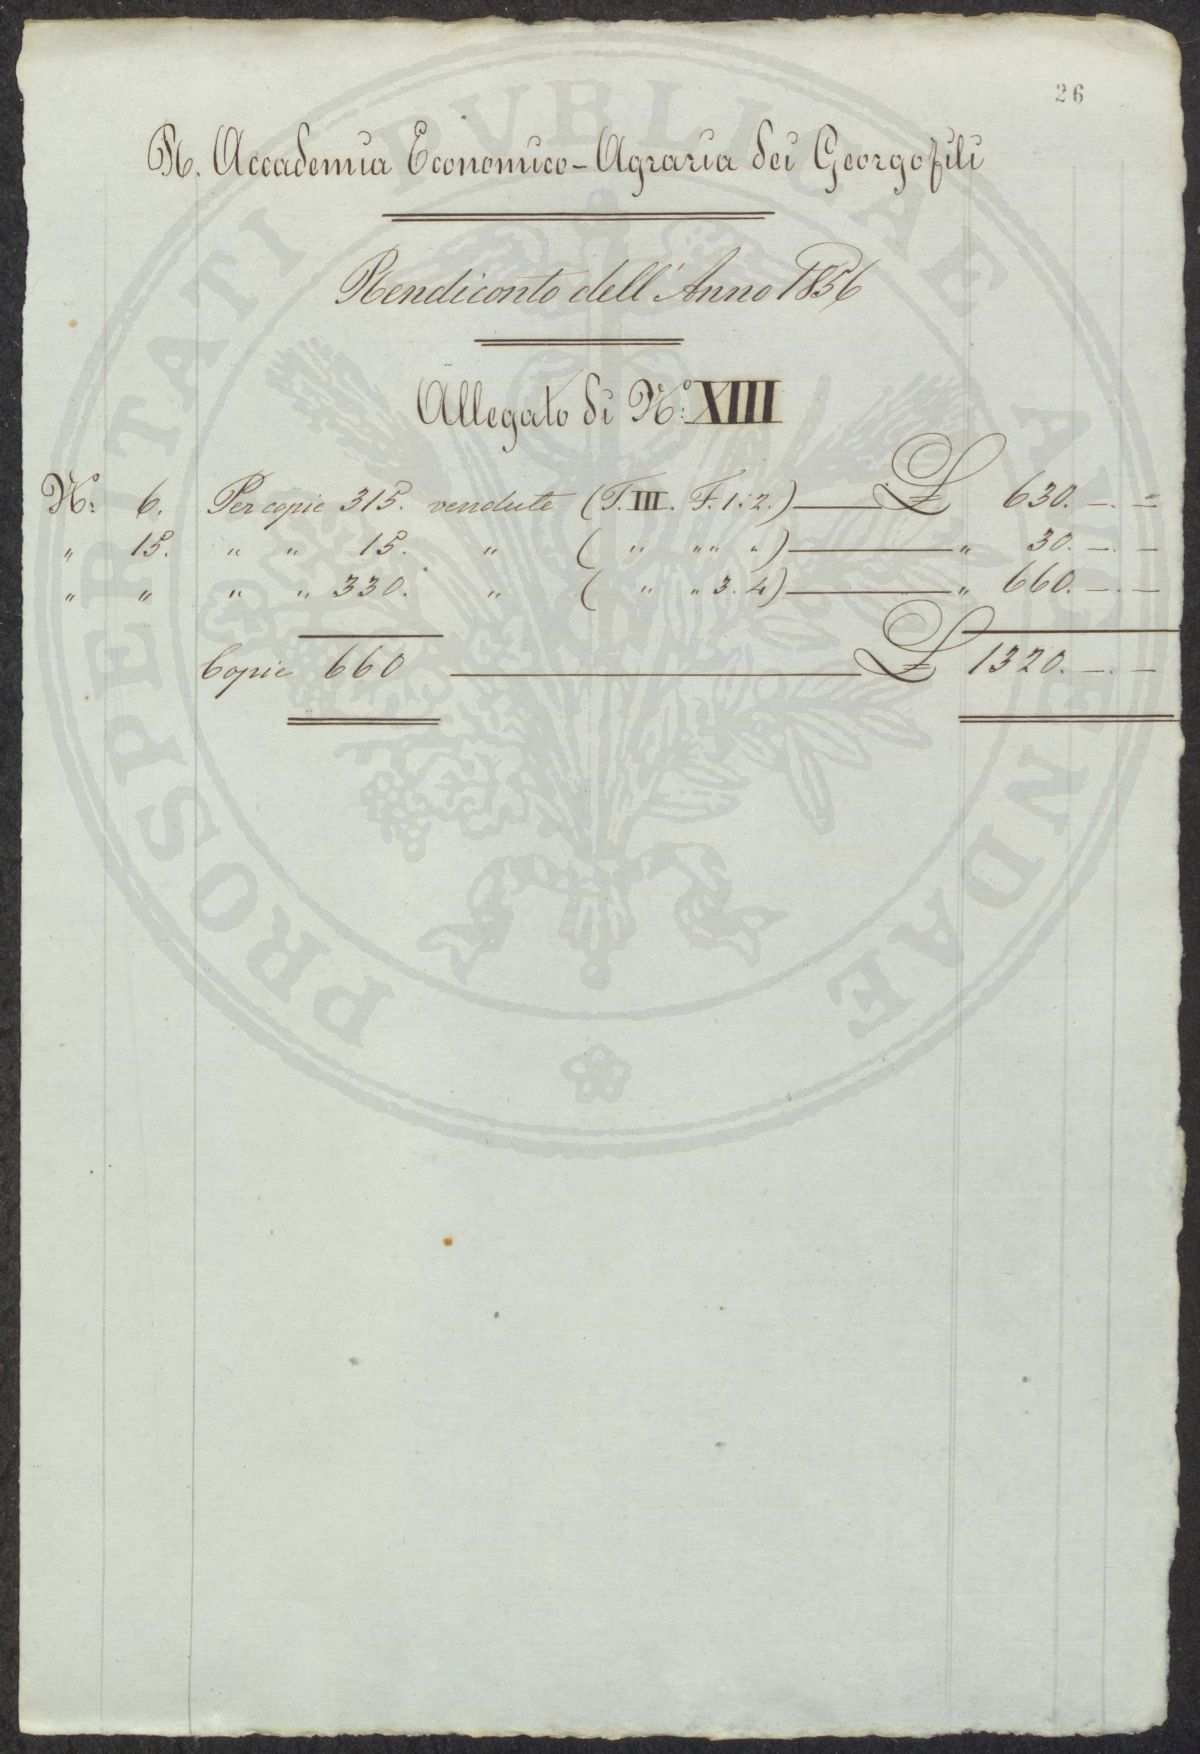 26
R. Accademia Economico-Agraria dei Georgofili
Rendiconto dell'Anno 1856
Allegato di N.° XIII
N.° 6. Per copie 315. vendute (T. III. F. 1: 2.) — £ 630. —. =
" 15. " " 15. " ( " " " " ) — " 30. —. —
" " " " 330. " ( " " 3. 4) — " 660. —. —
Copie 660 — £ 1320. —. —
PROSPERITATI PVBLICAE AVGENDAE